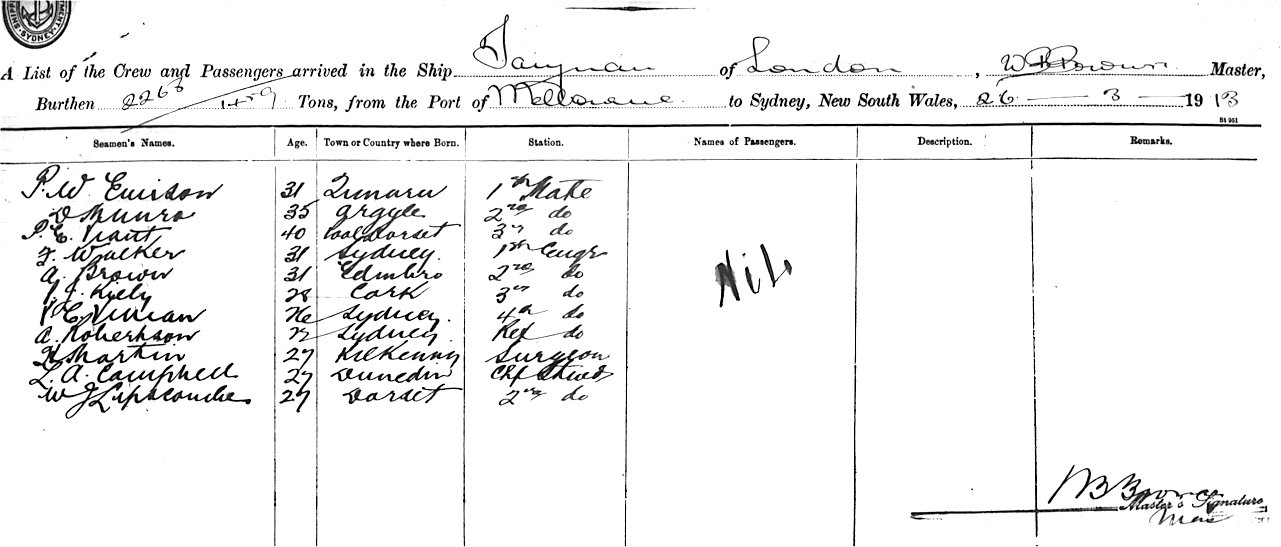 SYDNEY
A List of the Crew and Passengers arrived in the Ship Taiyuan of London, W B Brown Master,
Burthen 2268 / 1459 Tons, from the Port of Melbourne to Sydney, New South Wales, 26 — 3 — 1913
St 951
Seamen's Names. Age. Town or Country where Born. Station. Names of Passengers. Description. Remarks.
P. W. 31 Timaru 1st Mate
D Munro 35 Argyle 2nd do
P. E. 40 Dorset 3rd do
F. Walker 31 Sydney. 1st Engr
A. Brown 31 Edinbro 2nd do
Kiely 28 Cork 3rd do
Vivian 26 Sydney. 4th do
A. Robertson Sydney. Ref do
H Martin 27 Kilkenny Surgeon
L. A. Campbell 27 Dunedin Chf Stewd
W J Lipscombe 27 Dorset 2nd do
Nil.
W B Brown
Master's Signature